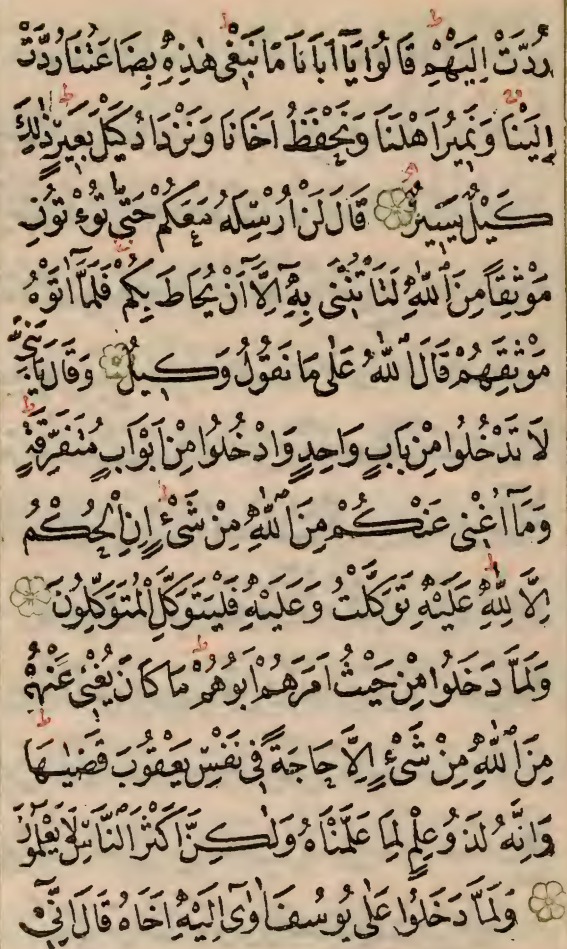 رُدَّتْ اِلَيْهِمْ قَالُوا يَٓا اَبَانَا مَا نَبْغٖى هٰذِهٖ بِضَاعَتُنَا رُدَّتْ
اِلَيْنَا وَنَمٖيرُ اَهْلَنَا وَنَحْفَظُ اَخَانَا وَنَزْدَادُ كَيْلَ بَعٖيرٍ ذٰلِكَ
كَيْلٌ يَسٖيرٌ قَالَ لَنْ اُرْسِلَهُ مَعَكُمْ حَتّٰى تُؤْتُونِ
مَوْثِقًا مِنَ اللّٰهِ لَتَاْتُنَّنٖى بِهٖٓ اِلَّٓا اَنْ يُحَاطَ بِكُمْ فَلَمَّٓا اٰتَوْهُ
مَوْثِقَهُمْ قَالَ اللّٰهُ عَلٰى مَا نَقُولُ وَكٖيلٌ وَقَالَ يَا بَنِىَّ
لَا تَدْخُلُوا مِنْ بَابٍ وَاحِدٍ وَادْخُلُوا مِنْ اَبْوَابٍ مُتَفَرِّقَةٍ
وَمَٓا اُغْنٖى عَنْكُمْ مِنَ اللّٰهِ مِنْ شَىْءٍ اِنِ الْحُكْمُ
اِلَّا لِلّٰهِ عَلَيْهِ تَوَكَّلْتُ وَعَلَيْهِ فَلْيَتَوَكَّلِ الْمُتَوَكِّلُونَ
وَلَمَّا دَخَلُوا مِنْ حَيْثُ اَمَرَهُمْ اَبُوهُمْ مَا كَانَ يُغْنٖى عَنْهُمْ
مِنَ اللّٰهِ مِنْ شَىْءٍ اِلَّا حَاجَةً فٖى نَفْسِ يَعْقُوبَ قَضٰيهَا
وَاِنَّهُ لَذُو عِلْمٍ لِمَا عَلَّمْنَاهُ وَلٰكِنَّ اَكْثَرَ النَّاسِ لَا يَعْلَمُونَ
وَلَمَّا دَخَلُوا عَلٰى يُوسُفَ اٰوٰٓى اِلَيْهِ اَخَاهُ قَالَ اِنّٖٓى